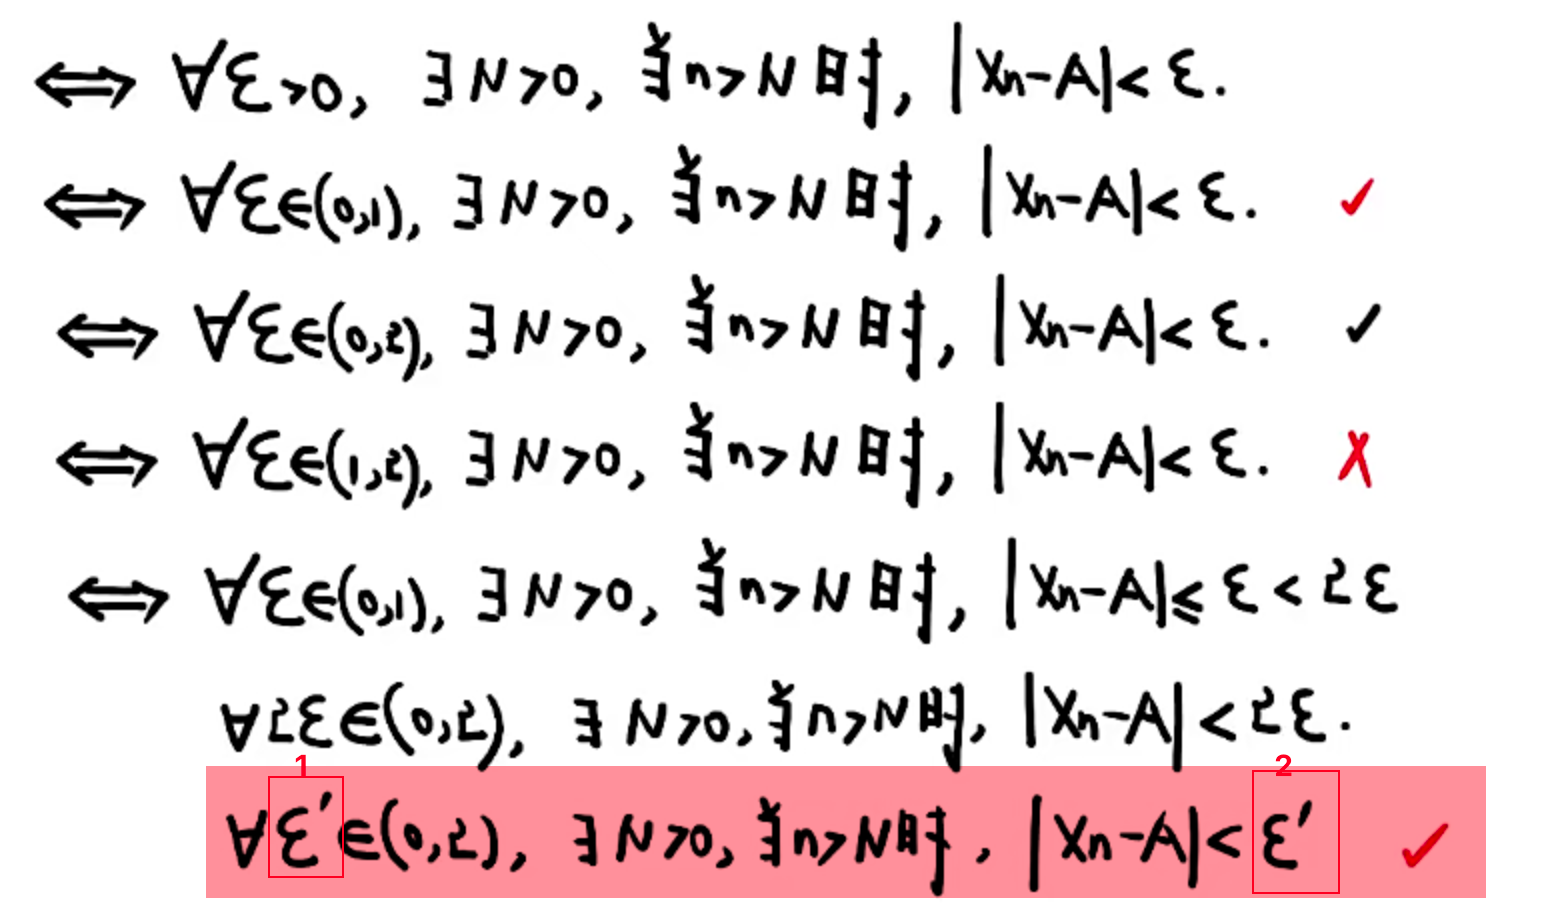 ⟺ ∀ε>0, ∃N>0, 当n>N时, |Xn-A|<ε.
⟺ ∀ε∈(0,1), ∃N>0, 当n>N时, |Xn-A|<ε. ✓
⟺ ∀ε∈(0,2), ∃N>0, 当n>N时, |Xn-A|<ε. ✓
⟺ ∀ε∈(1,2), ∃N>0, 当n>N时, |Xn-A|<ε. ✗
⟺ ∀ε∈(0,1), ∃N>0, 当n>N时, |Xn-A|≤ε<2ε
∀2ε∈(0,2), ∃N>0, 当n>N时, |Xn-A|<2ε.
1 2
∀ε′∈(0,2), ∃N>0, 当n>N时, |Xn-A|<ε′ ✓